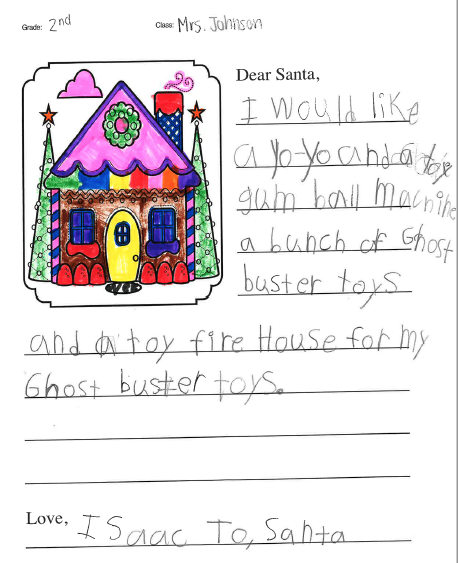 Grade: 2nd Class: Mrs. Johnson
Dear Santa,
I would like
a yo-yo and a toy
gum ball macnine
a bunch of Ghost
buster toys
and a toy fire House for my
Ghost buster toys.
Love, ISaac To, Santa